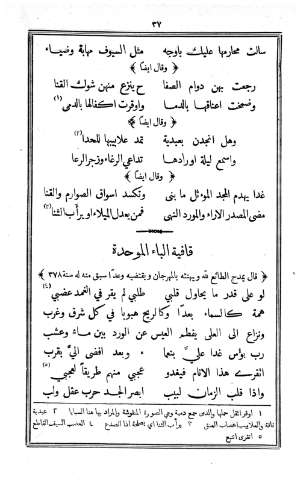 ٣٧
سالت محارمها عليك باوجه مثل السيوف مهابة وضياء
﴿ وقال ايضاً ﴾
رجعت بهن دوام الصفا ح ينزع منهن شوك القنا
وضمخت اعناقها بالدما واوقرت اكفالها بالدمى (١)
﴿ وقال ايضاً ﴾
وهل انجدن بعيدية تمد علابيها للحدا (٢)
واسمع ليلة اورادها تداعي الرغاء وزجر الرعا
﴿ وقال ايضاً ﴾
غدا يهدم المجد الموثل ما بنى وتكسد اسواق الصوارم والقنا
مضى المصدر الاراء والمورد النهى فمن يعدل الميلاء او يرأب الثنا (٣)
قافية الباء الموحدة
﴿ قال يمدح الطائع لله ويهنئه بالمهرجان ويقتضيه وعدا سبق منه له سنة ٣٧٨ ﴾
لو على قدر ما يحاول قلبي طلبي لم يقر في الغمد عضبي (٤)
همة كالسماء بعدا وكالريح هبوبا في كل شرق وغرب
ونزاع الى العلى يفطم العيس عن الورد بين ماء وعشب
رب بؤس غدا عليّ بنعما ء وبعد افضى الي بقرب
اتقرى هذا الانام فيغدو عجبي منهم طريقاً لعجبي (٥)
واذا قلب الزمان لبيب ابصر الجد حرب عقل ولب
١ اوقر اثقل حملها والدمى جمع دمية وهي الصورة المنقوشة والمراد بها هنا السبايا ٢ عيدية
ناقة والعلابي اعصاب العنق ٣ يرأب الثنا اي يصلحه اذا انصدع ٤ العضب السيف القاطع
٥ اتقرى اتتبع